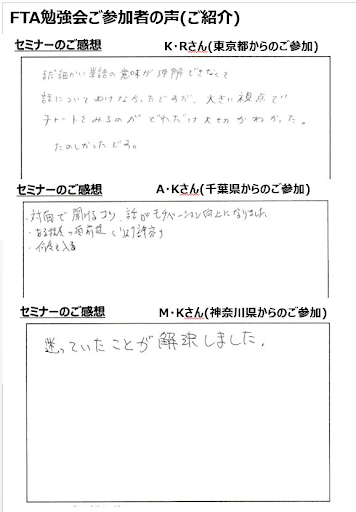 FTA勉強会ご参加者の声(ご紹介)
セミナーのご感想 K・Rさん(東京都からのご参加)
まだ細かい単語の意味が理解できなくて
話についてゆけなかったですが、大きい視点で
チャートをみるのがどれだけ大切かわかった。
たのしかったです。
セミナーのご感想 A・Kさん(千葉県からのご参加)
・対面で聞けるより、話がモチベーション向上になりました
・ある程度の
・
セミナーのご感想 M・Kさん(神奈川県からのご参加)
迷っていたことが解決しました。